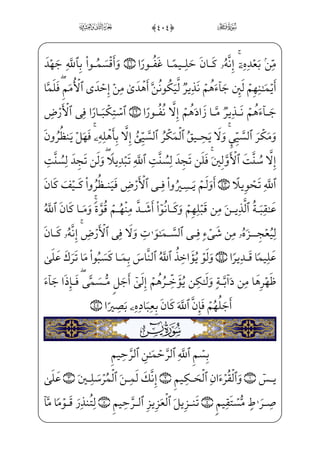 مِّنۢ بَعْدِهِۦٓ ۚ إِنَّهُۥ كَانَ حَلِيمًا غَفُورًا ﴿٤١﴾ وَأَقْسَمُوا۟ بِٱللَّهِ جَهْدَ
أَيْمَٰنِهِمْ لَئِن جَآءَهُمْ نَذِيرٌ لَّيَكُونُنَّ أَهْدَىٰ مِنْ إِحْدَى ٱلْأُمَمِ ۖ فَلَمَّا
جَآءَهُمْ نَذِيرٌ مَّا زَادَهُمْ إِلَّا نُفُورًا ﴿٤٢﴾ ٱسْتِكْبَارًا فِى ٱلْأَرْضِ
وَمَكْرَ ٱلسَّيِّئِ ۚ وَلَا يَحِيقُ ٱلْمَكْرُ ٱلسَّيِّئُ إِلَّا بِأَهْلِهِۦ ۚ فَهَلْ يَنظُرُونَ
إِلَّا سُنَّتَ ٱلْأَوَّلِينَ ۚ فَلَن تَجِدَ لِسُنَّتِ ٱللَّهِ تَبْدِيلًا ۖ وَلَن تَجِدَ لِسُنَّتِ
ٱللَّهِ تَحْوِيلًا ﴿٤٣﴾ أَوَلَمْ يَسِيرُوا۟ فِى ٱلْأَرْضِ فَيَنظُرُوا۟ كَيْفَ كَانَ
عَٰقِبَةُ ٱلَّذِينَ مِن قَبْلِهِمْ وَكَانُوٓا۟ أَشَدَّ مِنْهُمْ قُوَّةً ۚ وَمَا كَانَ ٱللَّهُ
لِيُعْجِزَهُۥ مِن شَىْءٍ فِى ٱلسَّمَٰوَٰتِ وَلَا فِى ٱلْأَرْضِ ۚ إِنَّهُۥ كَانَ
عَلِيمًا قَدِيرًا ﴿٤٤﴾ وَلَوْ يُؤَاخِذُ ٱللَّهُ ٱلنَّاسَ بِمَا كَسَبُوا۟ مَا تَرَكَ عَلَىٰ
ظَهْرِهَا مِن دَآبَّةٍ وَلَٰكِن يُؤَخِّرُهُمْ إِلَىٰٓ أَجَلٍ مُّسَمًّى ۖ فَإِذَا جَآءَ
أَجَلُهُمْ فَإِنَّ ٱللَّهَ كَانَ بِعِبَادِهِۦ بَصِيرًۢا ﴿٤٥﴾
بِسْمِ ٱللَّهِ ٱلرَّحْمَٰنِ ٱلرَّحِيمِ
يسٓ ﴿١﴾ وَٱلْقُرْءَانِ ٱلْحَكِيمِ ﴿٢﴾ إِنَّكَ لَمِنَ ٱلْمُرْسَلِينَ ﴿٣﴾ عَلَىٰ
صِرَٰطٍ مُّسْتَقِيمٍ ﴿٤﴾ تَنزِيلَ ٱلْعَزِيزِ ٱلرَّحِيمِ ﴿٥﴾ لِتُنذِرَ قَوْمًا مَّآ